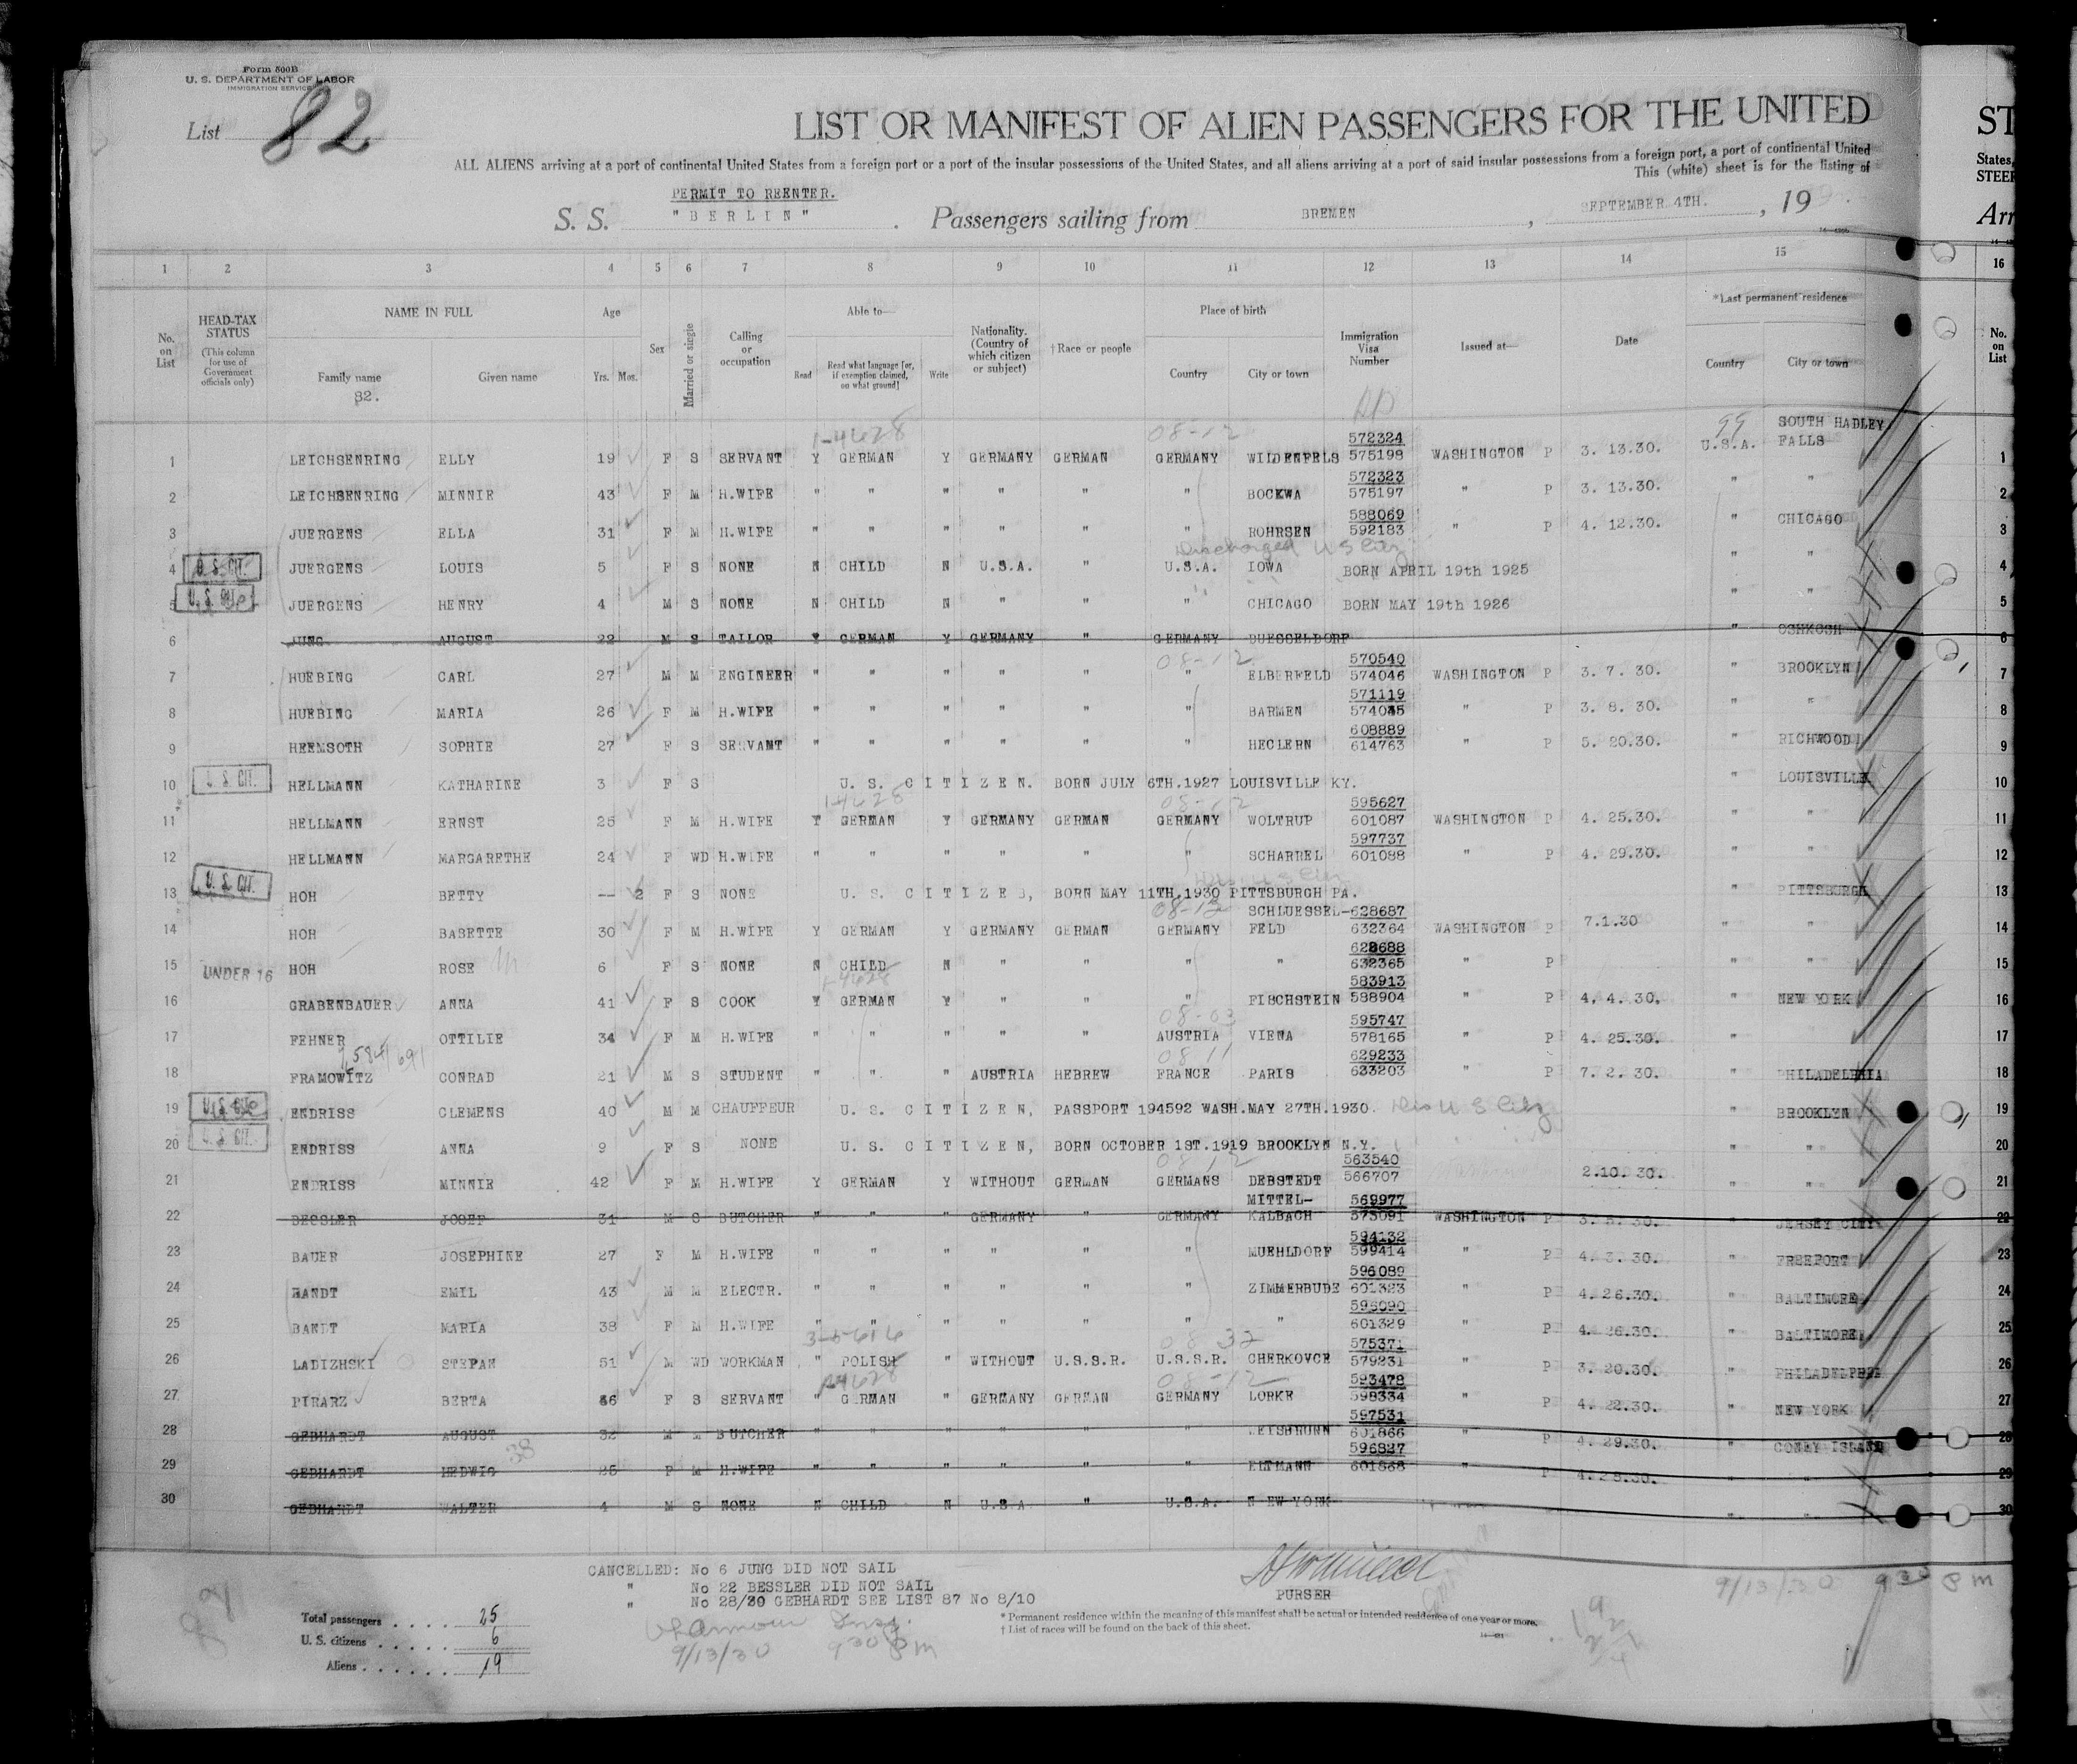 Form 500B
U. S. DEPARTMENT OF LABOR
IMMIGRATION SERVICE
List 82
LIST OR MANIFEST OF ALIEN PASSENGERS FOR THE UNITED
ALL ALIENS arriving at a port of continental United States from a foreign port or a port of the insular possessions of the United States, and all aliens arriving at a port of said insular possessions from a foreign port, a port of continental United
This (white) sheet is for the listing of
PERMIT TO REENTER.
S. S. "BERLIN" . Passengers sailing from BREMEN , SEPTEMBER 4TH. , 19
ST
States,
STEER
Arr
1 2 3 4 5 6 7 8 9 10 11 12 13 14 15 16
No. on List
HEAD-TAX STATUS (This column for use of Government officials only)
NAME IN FULL Family name Given name
82.
Age Yrs. Mos.
Sex
Married or single
Calling or occupation
Able to— Read Read what language [or, if exemption claimed, on what ground] Write
Nationality. (Country of which citizen or subject)
†Race or people
Place of birth Country City or town
Immigration Visa Number
Issued at—
Date
*Last permanent residence Country City or town
No. on List
1-4628 08-12 99 SOUTH HADLEY
1 LEICHSENRING ELLY 19 F S SERVANT Y GERMAN Y GERMANY GERMAN GERMANY WILDENFELS 572324 575198 WASHINGTON P 3. 13.30. U.S.A. FALLS 1
2 LEICHSENRING MINNIE 43 F M H.WIFE " " " " " " BOCKWA 572323 575197 " P 3. 13.30. " " 2
3 JUERGENS ELLA 31 F M H.WIFE " " " " " " ROHRSEN 588069 592183 " P 4. 12.30. " CHICAGO 3
Discharged U S Citz
4 U. S. CIT. JUERGENS LOUIS 5 F S NONE N CHILD N U.S.A. " U.S.A. IOWA BORN APRIL 19th 1925 " " 4
5 U. S. CIT. JUERGENS HENRY 4 M S NONE N CHILD N " " " CHICAGO BORN MAY 19th 1926 " " 5
6 JUNG AUGUST 22 M S TAILOR Y GERMAN Y GERMANY " GERMANY DUESSELDORF " OSHKOSH 6
08-12
7 HUEBING CARL 27 M M ENGINEER " " " " " " ELBERFELD 570540 574046 WASHINGTON P 3. 7. 30. " BROOKLYN 7
8 HUEBING MARIA 26 F M H.WIFE " " " " " " BARMEN 571119 574045 " P 3. 8. 30. " " 8
9 HEEMSOTH SOPHIE 27 F S SERVANT " " " " " " HECLERN 608889 614763 " P 5. 20.30. " RICHWOOD 9
10 U. S. CIT. HELLMANN KATHARINE 3 F S U. S. CITIZEN. BORN JULY 6TH.1927 LOUISVILLE KY. " LOUISVILLE 10
1-4628 08-12
11 HELLMANN ERNST 25 F M H.WIFE Y GERMAN Y GERMANY GERMAN GERMANY WOLTRUP 595627 601087 WASHINGTON P 4. 25.30. " " 11
12 HELLMANN MARGARETHE 24 F WD H.WIFE " " " " " " SCHARREL 597737 601088 " P 4. 29.30. " " 12
13 U. S. CIT. HOH BETTY — 2 F S NONE U. S. CITIZEN, BORN MAY 11TH.1930 PITTSBURGH PA. " PITTSBURGH 13
08-12 SCHLUESSEL-
14 HOH BABETTE 30 F M H.WIFE Y GERMAN Y GERMANY GERMAN GERMANY FELD 628687 632364 WASHINGTON P 7.1.30 " " 14
15 UNDER 16 HOH ROSE 6 F S NONE N CHILD N " " " " 628688 632365 " P 15
1-4628
16 GRABENBAUER ANNA 41 F S COOK Y GERMAN Y " " " FISCHSTEIN 583913 588904 " P 4. 4. 30. " NEW YORK 16
08-03
17 FEHNER OTTILIE 34 F M H.WIFE " " " " " AUSTRIA VIENA 595747 578165 " P 4. 25.30. " " 17
08 11
18 FRAMOWITZ CONRAD 21 M S STUDENT " " " AUSTRIA HEBREW FRANCE PARIS 629233 633203 " P 7. 2. 30. " PHILADELPHIA 18
19 U. S. CIT. ENDRISS CLEMENS 40 M M CHAUFFEUR U. S. CITIZEN, PASSPORT 194592 WASH.MAY 27TH.1930. Dis U S Citz " BROOKLYN 19
20 U. S. CIT. ENDRISS ANNA 9 F S NONE U. S. CITIZEN, BORN OCTOBER 1ST.1919 BROOKLYN N.Y. " " 20
08-12
21 ENDRISS MINNIE 42 F M H.WIFE Y GERMAN Y WITHOUT GERMAN GERMANS DEBSTEDT 563540 566707 2.10. 30. " " 21
MITTEL-
22 BESSLER JOSEF 31 M S BUTCHER " " " GERMANY " GERMANY KALBACH 569977 573091 WASHINGTON P 3. 5. 30. " JERSEY CITY 22
23 BAUER JOSEPHINE 27 F M H.WIFE " " " " " " MUEHLDORF 594132 599414 " P 4. 3. 30. " FREEPORT 23
24 BANDT EMIL 43 M M ELECTR. " " " " " " ZIMMERBUDE 596089 601323 " P 4. 26.30. " BALTIMORE 24
25 BANDT MARIA 38 F M H.WIFE " " " " " " " 596090 601329 " P 4. 26.30. " BALTIMORE 25
08 32
26 LADIZHSKI STEPAN 51 M WD WORKMAN " POLISH " WITHOUT U.S.S.R. U.S.S.R. CHERKOVCE 575371 579231 " P 3. 20.30. " PHILADELPHIA 26
1-4628 08-12
27 PIRARZ BERTA 46 F S SERVANT " GERMAN " GERMANY GERMAN GERMANY LORKE 593478 598334 " P 4. 22.30. " NEW YORK 27
28 GEBHARDT AUGUST 32 M M BUTCHER " " " " " " 597531 601866 " P 4. 29.30. " CONEY ISLAND 28
38
29 GEBHARDT HEDWIG 25 F M H.WIFE " " " " " " ELTMANN 596827 601868 " P 4. 28.30. " " 29
30 GEBHARDT WALTER 4 M S NONE N CHILD N U.S.A " U.S.A. NEW YORK " " 30
CANCELLED: No 6 JUNG DID NOT SAIL
" No 22 BESSLER DID NOT SAIL
" No 28/30 GEBHARDT SEE LIST 87 No 8/10
PURSER
9/13/30 9 30 P M
* Permanent residence within the meaning of this manifest shall be actual or intended residence of one year or more.
† List of races will be found on the back of this sheet.
Total passengers . . . . 25
U. S. citizens . . . . . 6
Aliens . . . . . . 19
Insp.
9/13/30 9 30 P M